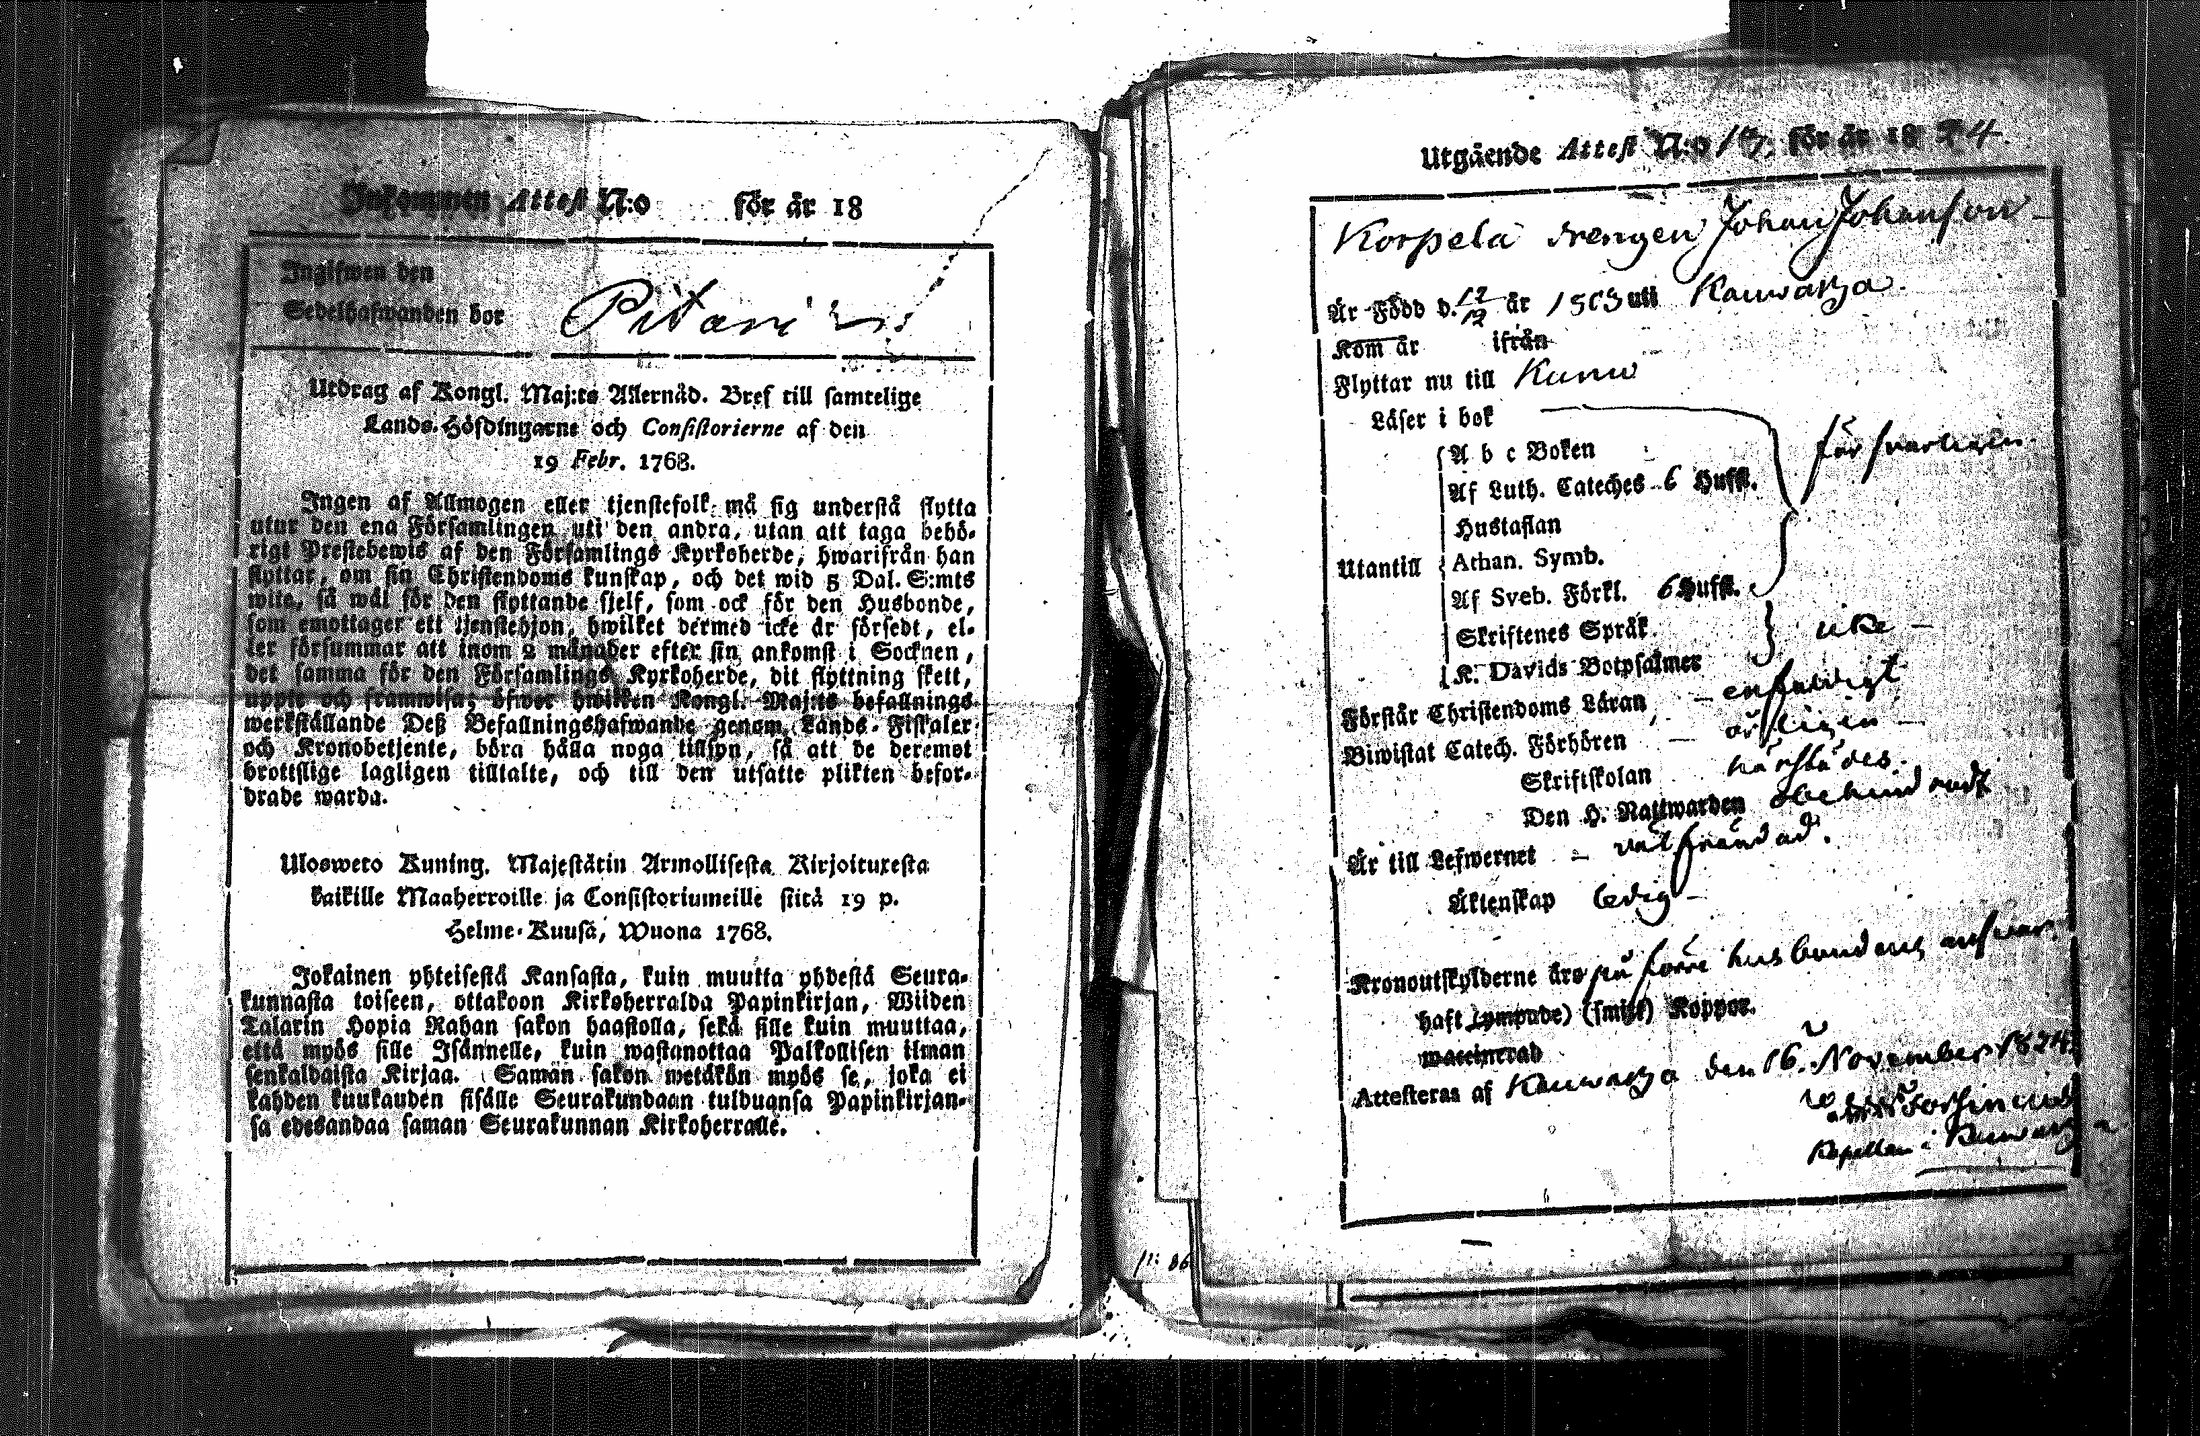 Inkommen Attest N:o för år 18
Ingifwen den
Sedelhafwanden bor
Utdrag af Kongl. Maj:ts Allernåd. Bref till samtelige
Lands-Höfdingarne och Consistorierne af den
19 Febr. 1768.
Ingen af Allmogen eller tjenstefolk må sig understå flytta
utur den ena Församlingen uti den andra, utan att taga behö-
rigt Prestebewis af den Församlings Kyrkoherde, hwarifrån han
flyttar, om sin Christendoms kunskap, och det wid 5 Dal. S:mts
wite, så wäl för den flyttande sjelf, som ock för den Husbonde,
som emottager ett tjenstehjon, hwilket dermed icke är försedt, el-
ler försummar att inom 2 månader efter sin ankomst i Socknen,
det samma för den Församlings Kyrkoherde, dit flyttning skett,
uppte och framwisa; öfwer hwilken Kongl. Maj:ts befallnings
werkställande Deß Befallningshafwande genom Lands-Fiskaler
och Kronobetjente, böra hålla noga tillsyn, så att de deremot
brottslige lagligen tilltalte, och till den utsatte plikten befor-
drade warda.
Ulosweto Kuning. Majestätin Armollisesta Kirjoituxesta
kaikille Maaherroille ja Consistoriumeille siitä 19 p.
Helme-Kuusa, Wuona 1768.
Jokainen yhteisestä Kansasta, kuin muutta yhdestä Seura-
kunnasta toiseen, ottakoon Kirkoherralda Papinkirjan, Wiiden
Talarin Hopia Rahan sakon haastolla, sekä sille kuin muuttaa,
että myös sille Isännelle, kuin wastanottaa Palkollisen ilman
senkaldaista Kirjaa. Saman sakon wetäkön myös se, joka ei
kahden kuukauden sisälle Seurakundaan tulduansa Papinkirjan-
sa edesandaa saman Seurakunnan Kirkoherralle.
Utgående Attest N:o för år 18 24.
Korpela drengen Johan Johansson
Är Född d. 12/12 år 1803 uti Kauwatza.
Kom år ifrån
Flyttar nu till Kumo
Läser i bok
A b c Boken försvarligen.
Af Luth. Cateches 6 Huffst.
Hustaflan
Utantill Athan. Symb.
Af Sveb. Förkl. 6 Huffst.
Skriftenes Språk icke
K. Davids Botpsalmer
Förstår Christendoms Läran enfaldigt
Biwistat Catech. Förhören årligen
Skriftskolan härstädes.
Den H. Nattwarden obehindradt
Är till Lefwernet välfräjdad.
Äktenskap ledig
Kronoutskylderne äro på förre husbondens answar.
haft (ympade) (smitt) Koppor.
waccinerad
Attesteras af Kauwatza den 16. November 1824
Kapellan i Kauwatza